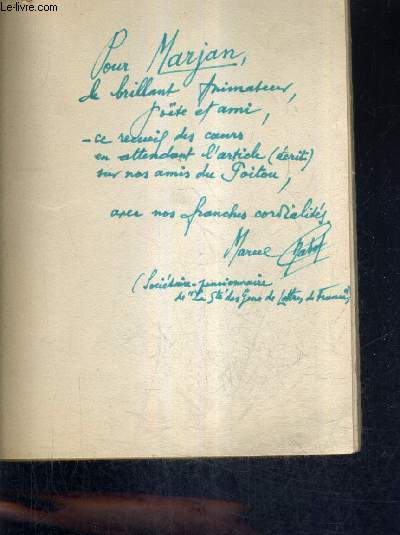 Le-livre.com
Pour Marjan,
le brillant Animateur,
Poëte et ami,
- ce recueil des cœurs
en attendant l'article (écrit)
sur nos amis du Poitou,
avec nos franches cordialités
Marcel
(Sociétaire-pensionnaire
de "La Sté des Gens de Lettres de France")